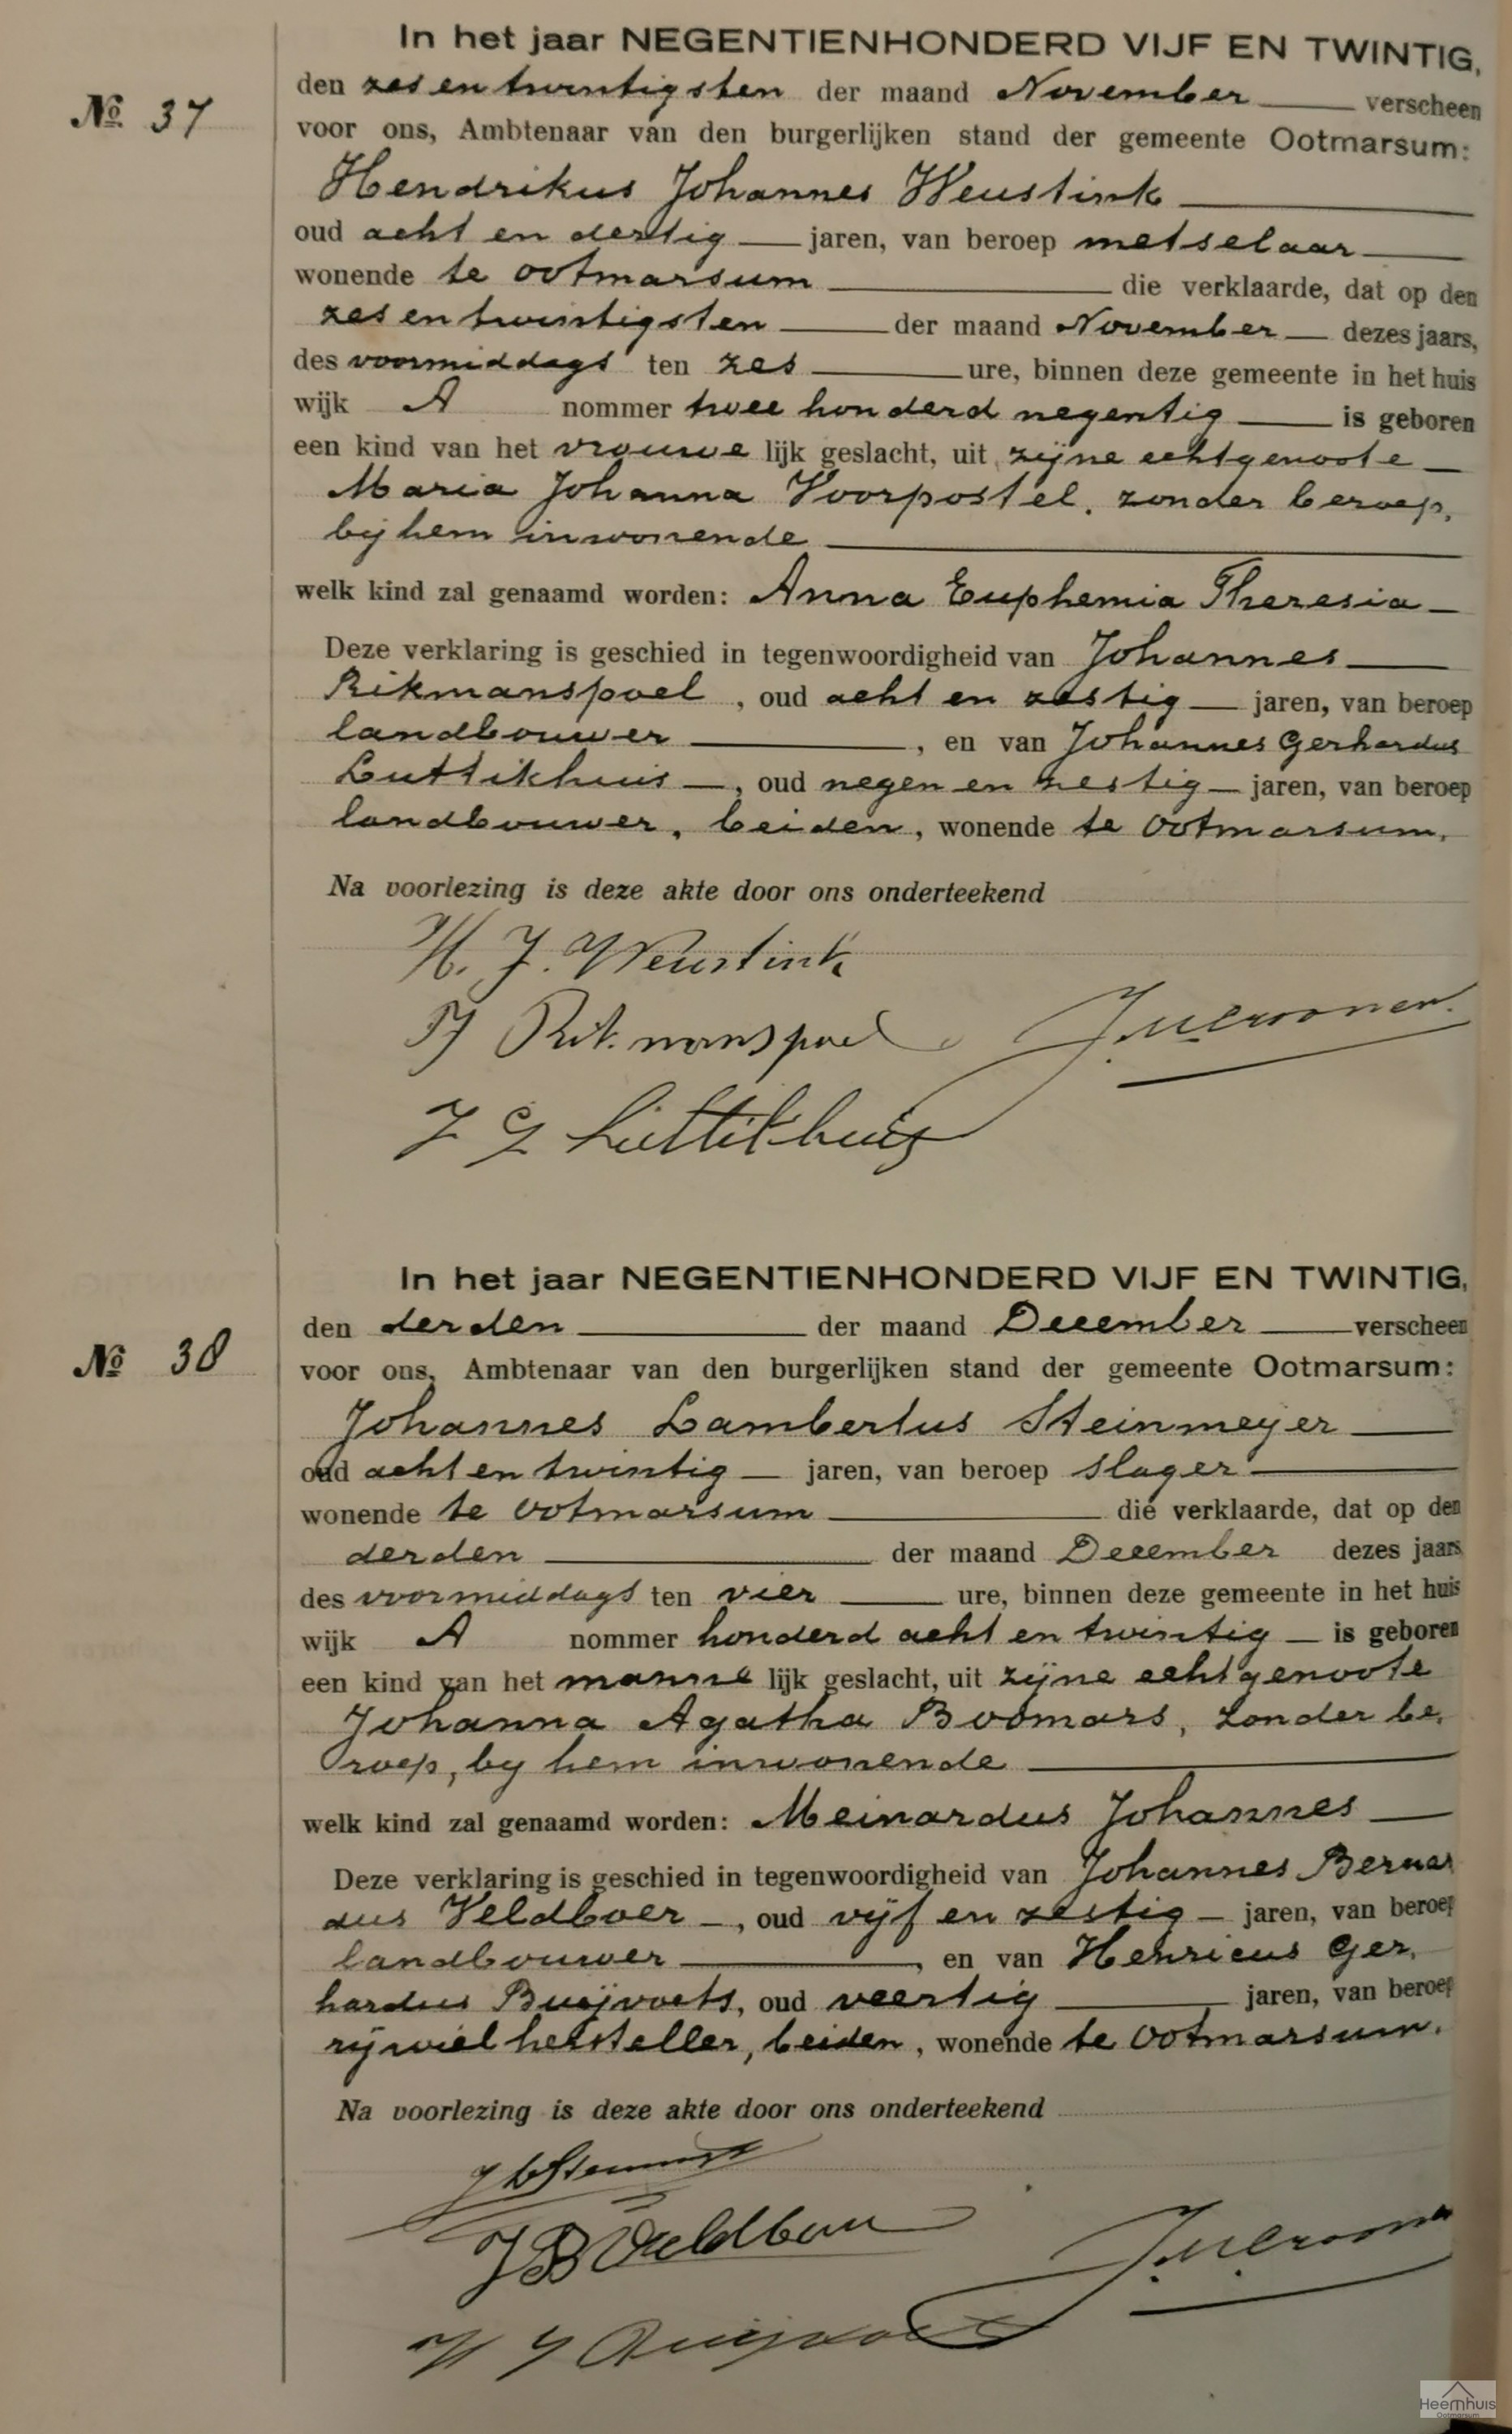 In het jaar NEGENTIENHONDERD VIJF EN TWINTIG,
No 37
den zes en twintigsten der maand November verscheen
voor ons, Ambtenaar van den burgerlijken stand der gemeente Ootmarsum:
Hendrikus Johannes Weustink
oud acht en dertig jaren, van beroep metselaar
wonende te Ootmarsum die verklaarde, dat op den
zes en twintigsten der maand November dezes jaars,
des voormiddags ten zes ure, binnen deze gemeente in het huis
wijk A nommer twee honderd negentig is geboren
een kind van het vrouwe lijk geslacht, uit zijne echtgenoote
Maria Johanna Voorpostel, zonder beroep,
bij hem inwonende
welk kind zal genaamd worden: Anna Euphemia Theresia
Deze verklaring is geschied in tegenwoordigheid van Johannes
Rikmanspoel, oud acht en zestig jaren, van beroep
landbouwer, en van Johannes Gerhardus
Luttikhuis, oud negen en zestig jaren, van beroep
landbouwer, beiden, wonende te Ootmarsum.
Na voorlezing is deze akte door ons onderteekend
H. J. Weustink
J Rikmanspoel
J G Luttikhuis
In het jaar NEGENTIENHONDERD VIJF EN TWINTIG,
No 38
den derden der maand December verscheen
voor ons, Ambtenaar van den burgerlijken stand der gemeente Ootmarsum:
Johannes Lambertus Steinmeyer
oud acht en twintig jaren, van beroep slager
wonende te Ootmarsum die verklaarde, dat op den
derden der maand December dezes jaars
des voormiddags ten vier ure, binnen deze gemeente in het huis
wijk A nommer honderd acht en twintig is geboren
een kind van het manne lijk geslacht, uit zijne echtgenoote
Johanna Agatha Boomars, zonder be,
roep, by hem inwonende
welk kind zal genaamd worden: Meinardus Johannes
Deze verklaring is geschied in tegenwoordigheid van Johannes Bernar
dus Veldboer, oud vijf en zestig jaren, van beroep
landbouwer, en van Henricus Ger,
hardus Buijvoets, oud veertig jaren, van beroep
rijwielhersteller, beiden, wonende te Ootmarsum.
Na voorlezing is deze akte door ons onderteekend
J B Veldboer
Heemhuis
Ootmarsum